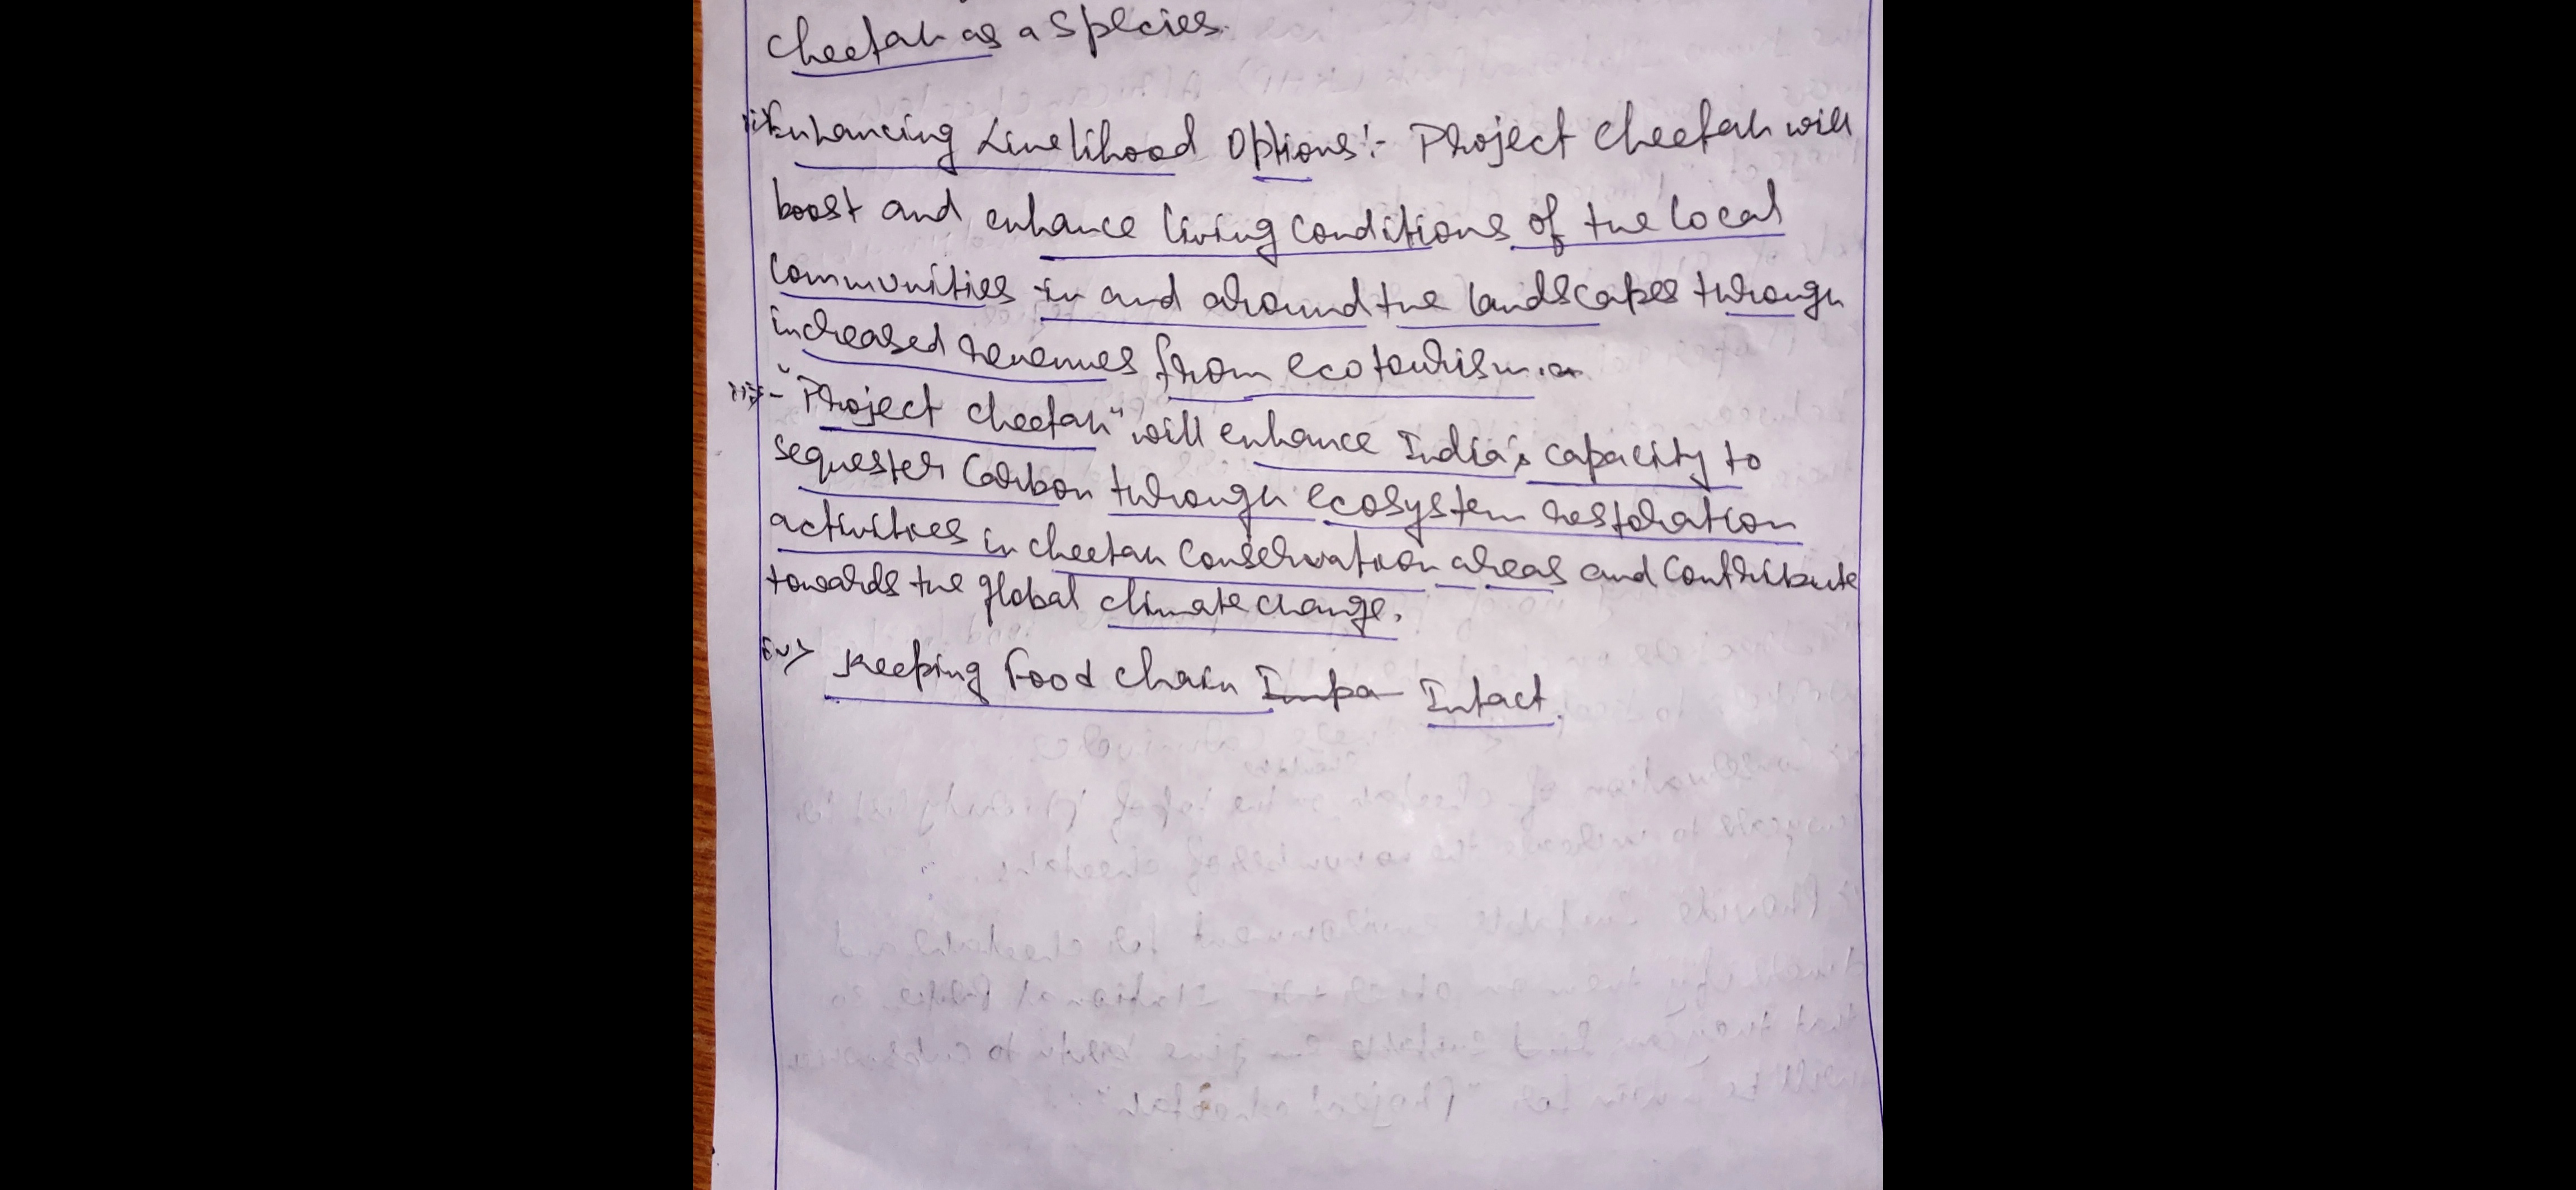 Cheetah as a species.
ii> Enhancing Livelihood Options:- Project Cheetah will
boost and enhance living conditions of the local
communities in and around the landscapes through
increased revenues from ecotourism.
iii> - "Project Cheetah" will enhance India's capacity to
sequester Carbon through ecosystem restoration
activities in cheetah Conservation areas and Contribute
towards the global climate change.
iv> Keeping Food Chain Impa Intact.